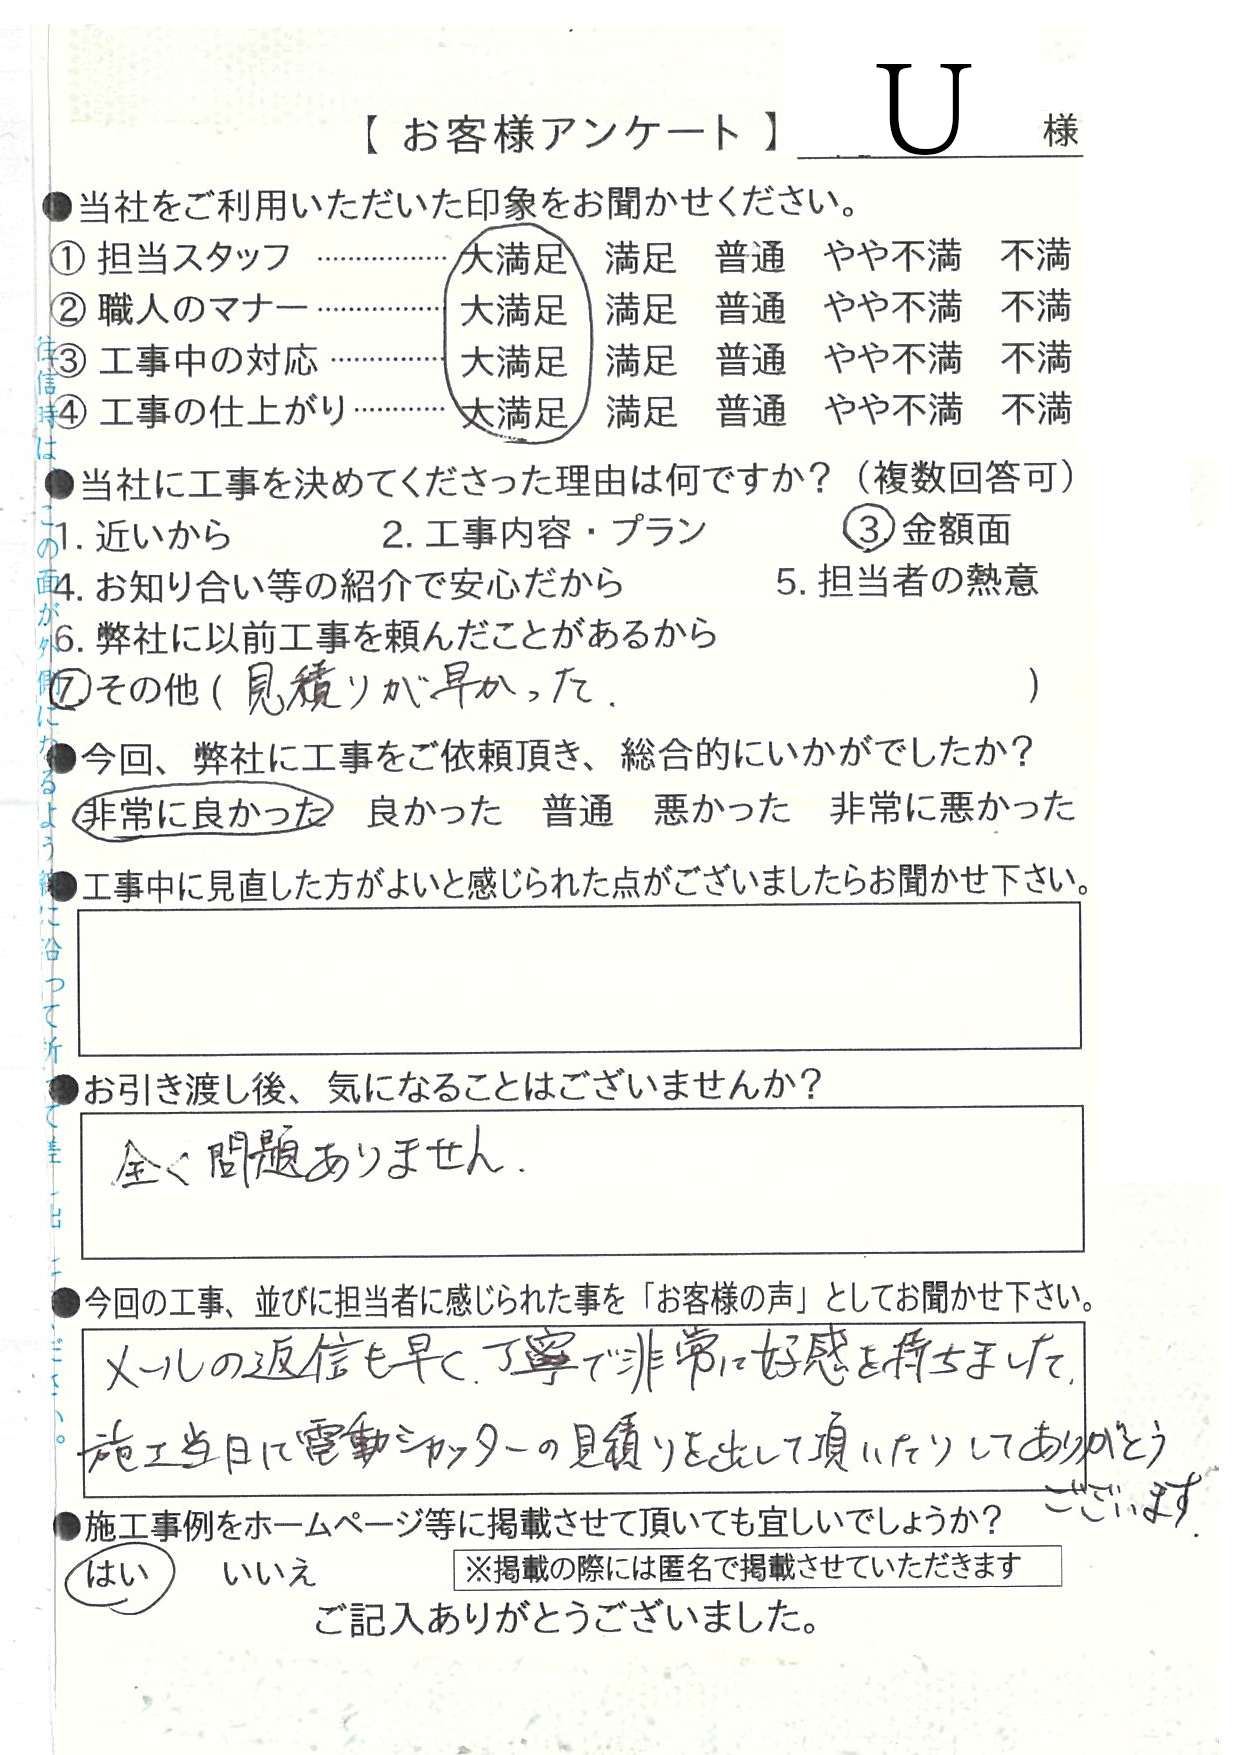 【 お客様アンケート 】 U 様
●当社をご利用いただいた印象をお聞かせください。
① 担当スタッフ ……………… 大満足 満足 普通 やや不満 不満
② 職人のマナー ……………… 大満足 満足 普通 やや不満 不満
③ 工事中の対応 ……………… 大満足 満足 普通 やや不満 不満
④ 工事の仕上がり ………… 大満足 満足 普通 やや不満 不満
●当社に工事を決めてくださった理由は何ですか？（複数回答可）
1. 近いから 2. 工事内容・プラン ③ 金額面
4. お知り合い等の紹介で安心だから 5. 担当者の熱意
6. 弊社に以前工事を頼んだことがあるから
⑦ その他 ( 見積りが早かった. )
●今回、弊社に工事をご依頼頂き、総合的にいかがでしたか？
非常に良かった 良かった 普通 悪かった 非常に悪かった
●工事中に見直した方がよいと感じられた点がございましたらお聞かせ下さい。
●お引き渡し後、気になることはございませんか？
全く問題ありません.
●今回の工事、並びに担当者に感じられた事を「お客様の声」としてお聞かせ下さい。
メールの返信も早く、丁寧で非常に好感を持ちました.
施工当日に電動シャッターの見積りを出して頂いたりしてありがとう
ございます.
●施工事例をホームページ等に掲載させて頂いても宜しいでしょうか？
はい いいえ ※掲載の際には匿名で掲載させていただきます
ご記入ありがとうございました。
往信時は、この面が外側になるよう線に沿って折って差し出してください。